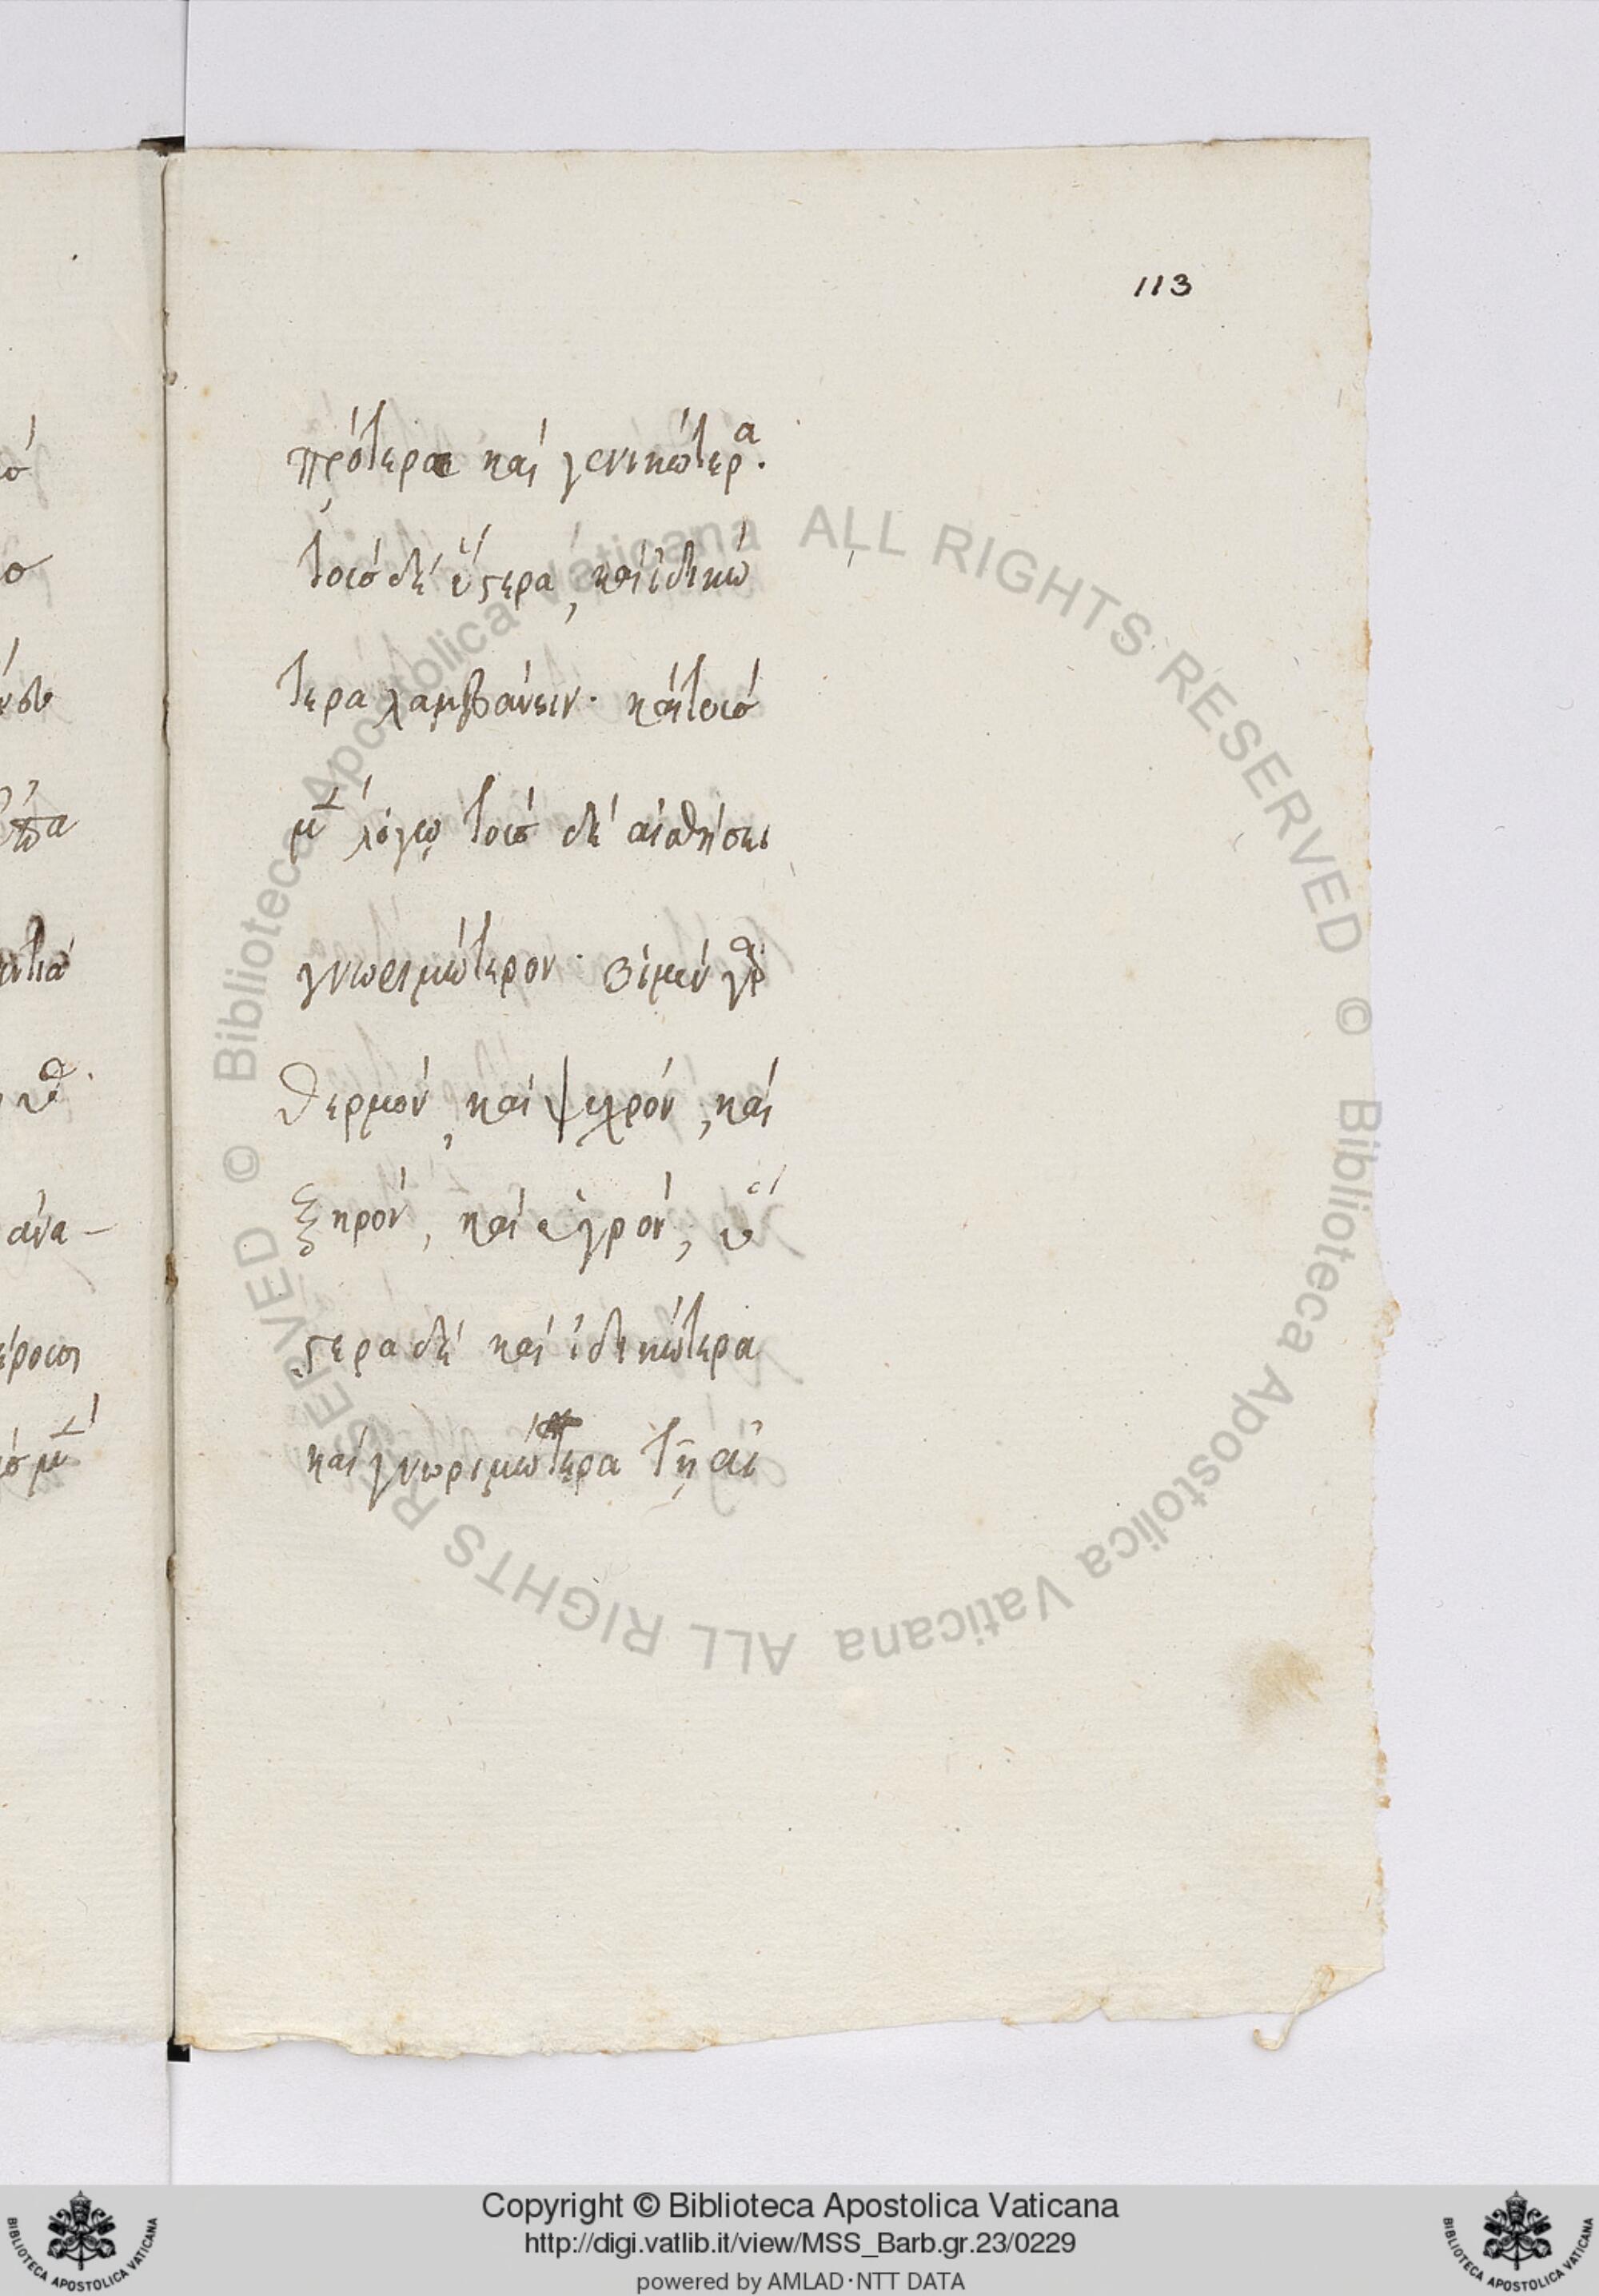 113
πρότερα καὶ γενικώτερα.
τοῖσ δὲ ὕστερα, καὶ εἰδικώ
τερα λαμβάνειν· καὶ τοῖσ
μὲν λόγῳ τοῖσ δὲ αἰσθήσει
γνωριμώτερον· οἱ μὲν γὰρ
θερμόν, καὶ ψυχρόν, καὶ
ξηρόν, καὶ ὑγρόν, ὕ
στερα δὲ καὶ ἰδικώτερα
καὶ γνωριμώτερα τῇ αἰ
ανα-
© Biblioteca Apostolica Vaticana ALL RIGHTS RESERVED © Biblioteca Apostolica Vaticana ALL RIGHTS RESERVED
Copyright © Biblioteca Apostolica Vaticana
http://digi.vatlib.it/view/MSS_Barb.gr.23/0229
powered by AMLAD·NTT DATA
BIBLIOTECA APOSTOLICA VATICANA
BIBLIOTECA APOSTOLICA VATICANA